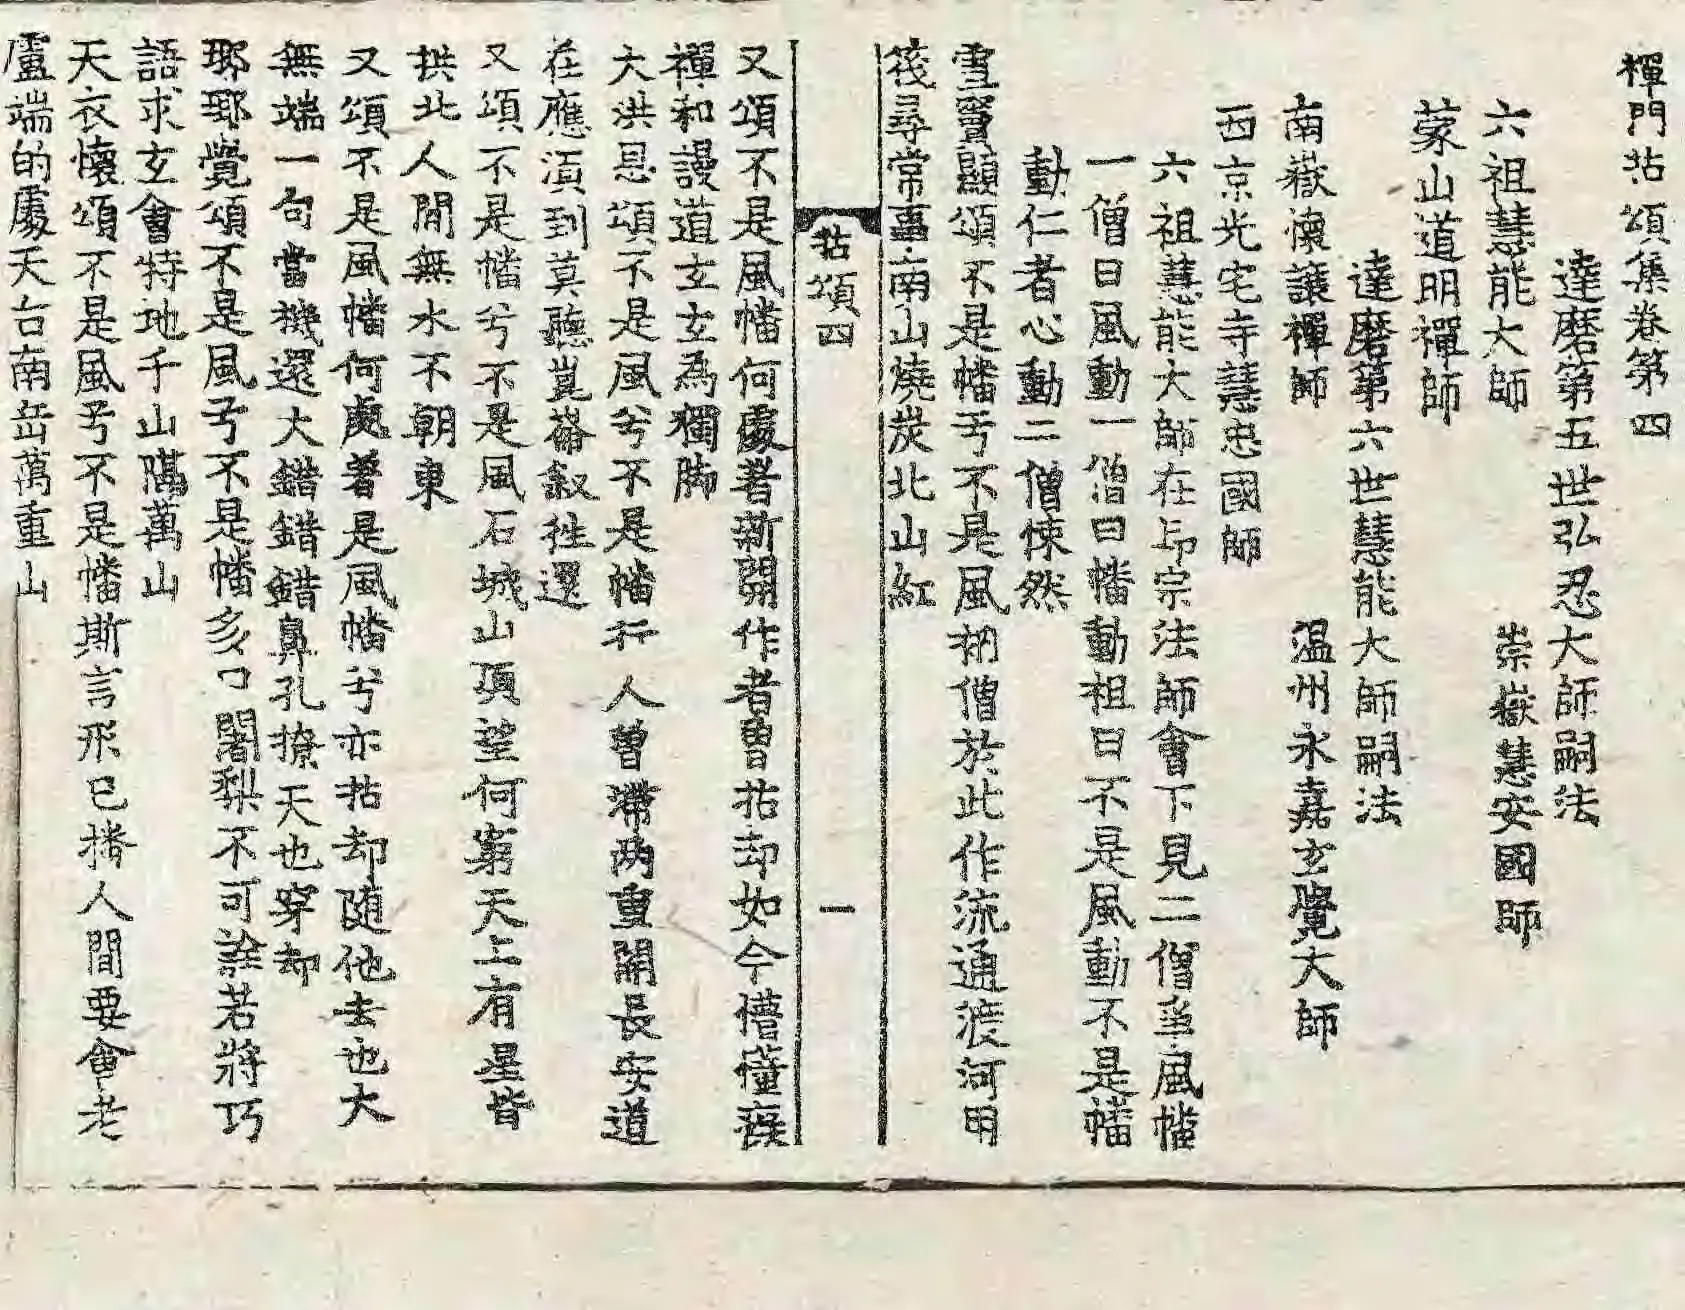 禪門拈頌集卷第四
達磨第五世弘忍大師嗣法
六祖慧能大師　崇嶽慧安國師
蒙山道明禪師
達磨第六世慧能大師嗣法
南嶽懷讓禪師　温州永嘉玄覺大師
西京光宅寺慧忠國師
六祖慧能大師在印宗法師會下見二僧爭風幡
一僧曰風動一僧曰幡動祖曰不是風動不是幡
動仁者心動二僧悚然
雪竇顯頌不是幡兮不是風衲僧於此作流通渡河用
筏尋常事南山燒炭北山紅
拈頌四　一
又頌不是風幡何處著新開作者曽拈却如今懵懂癡
禪和謾道玄玄為獨脚
大洪恩頌不是風兮不是幡行人曽滯两重關長安道
在應湏到莫聽崑崙敍徃還
又頌不是幡兮不是風石城山頂望何窮天上有星皆
拱北人間無水不朝東
又頌不是風幡何處著是風幡兮亦拈却随他去也大
無端一句當機還大錯錯錯鼻孔撩天也穿却
瑯瑘覺頌不是風兮不是幡多口闍梨不可詮若將巧
語求玄會特地千山隔萬山
天衣懷頌不是風兮不是幡斯言形已播人間要會老
盧端的處天台南岳萬重山